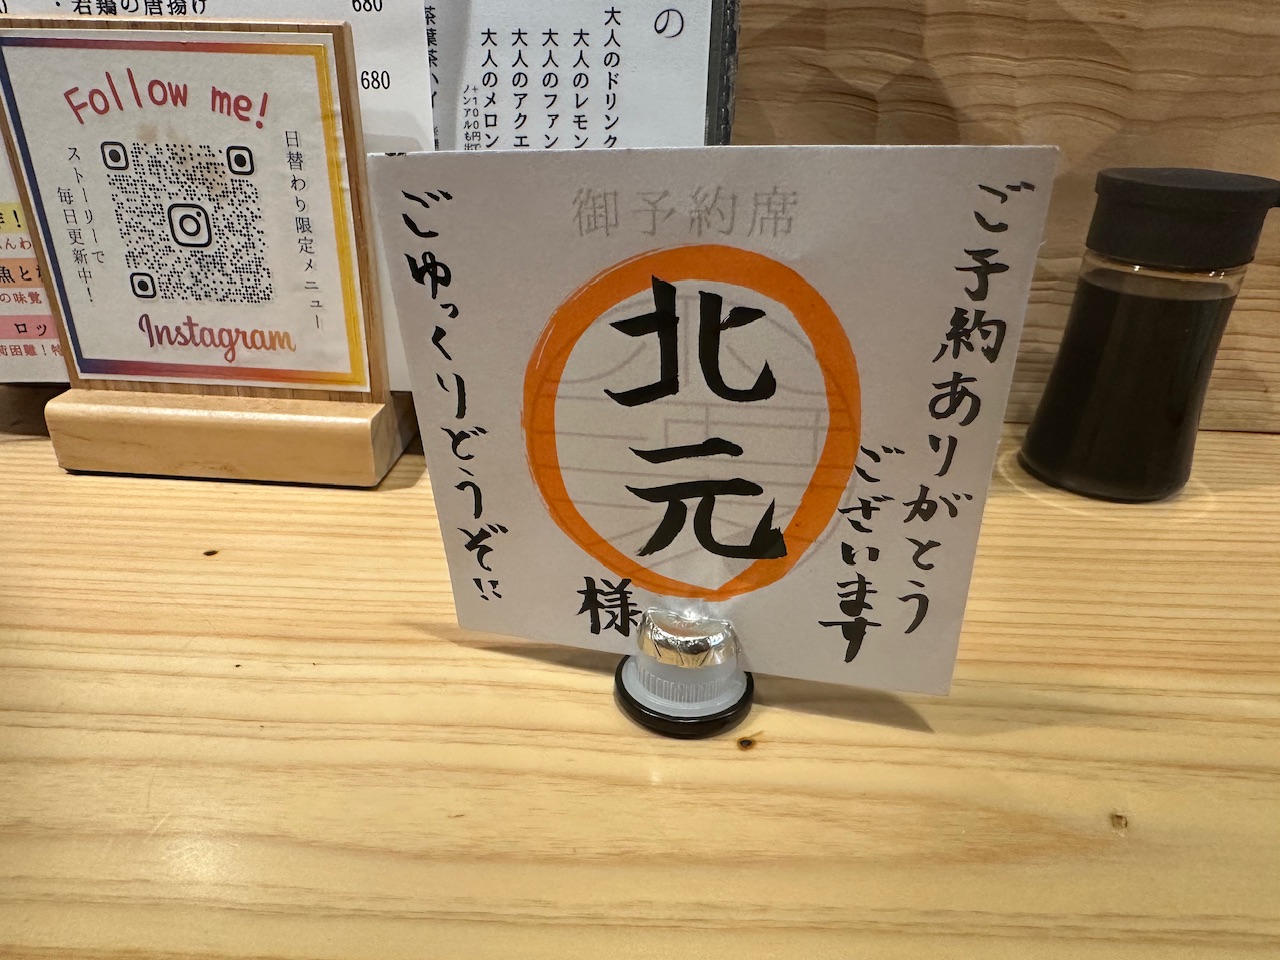 ・若鶏の唐揚げ 680
680
の
大人のドリンク
大人のレモン
大人のファン
大人のアクエ
大人のメロン
Follow me!
日替わり限定メニュー
ストーリーで
毎日更新中!
Instagram
御予約席
ご予約ありがとう
ございます
北元
様
ごゆっくりどうぞ!!
魚と
の味覚
ロッ